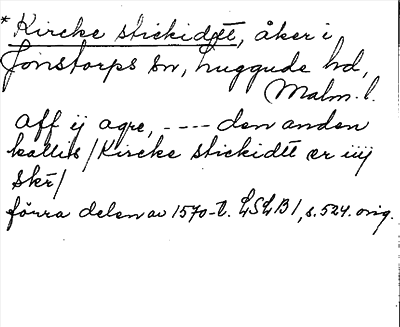 * Kircke stickidtt, åker i
Jonstorps sn, Luggude hd,
Malm. l.
Aff ij agre, ---- den anden
kallits / Kircke stickidtt er iiij
skr/
förra delen av 1570-t. LSLB 1, s. 524. orig.